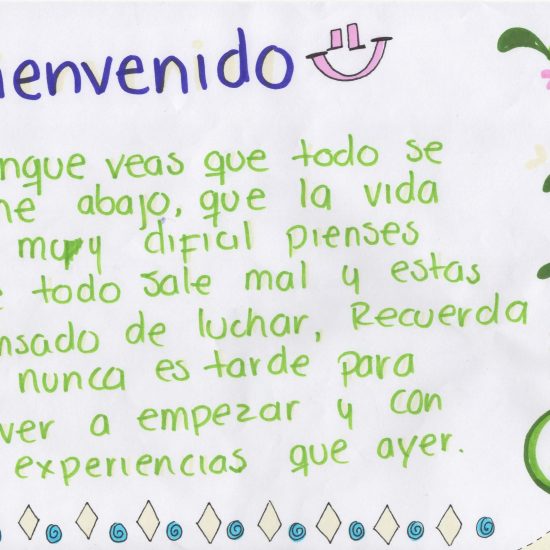 ienvenido
nque veas que todo se
ne abajo, que la vida
muy dificil pienses
e todo sale mal y estas
nsado de luchar, Recuerda
nunca es tarde para
ver a empezar y con
experiencias que ayer.